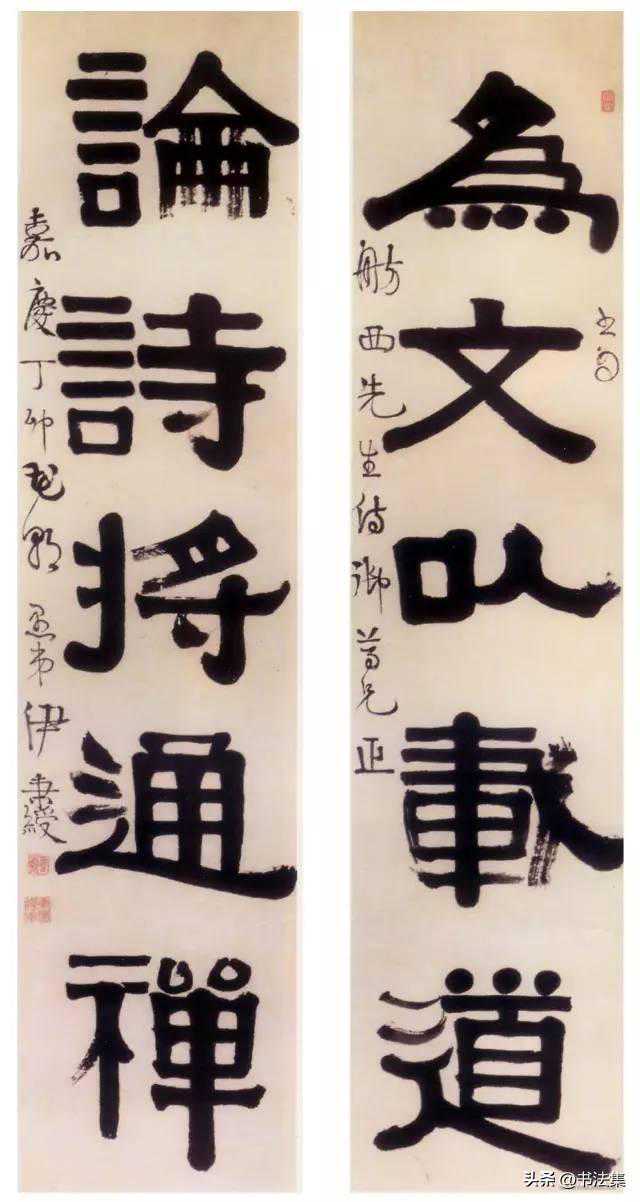 為文以載道
舫西先生侍御尊兄正
論詩將通禪
嘉慶丁卯花朝 愚弟 伊秉綬
头条 @书法集